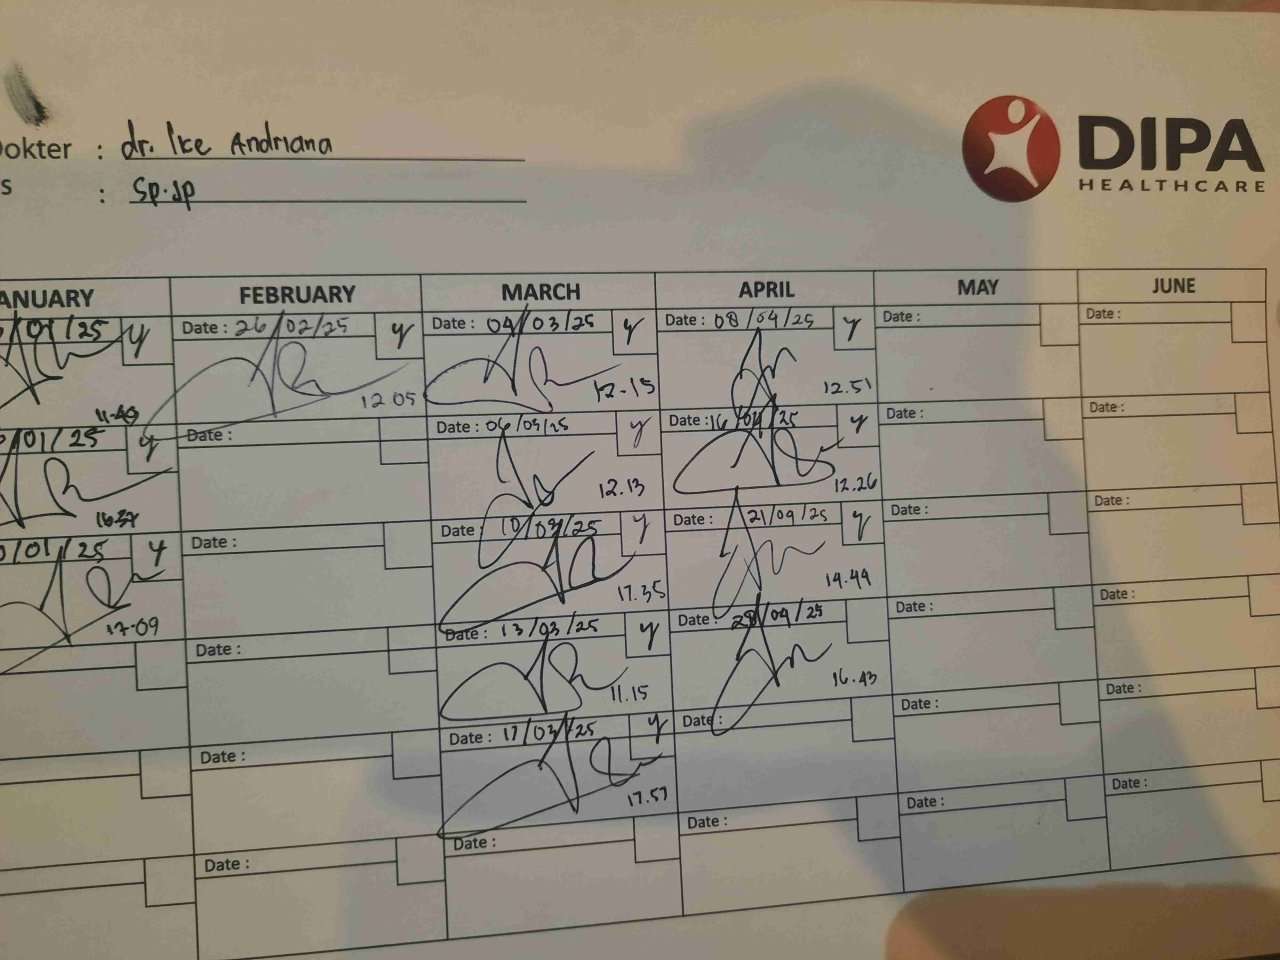 okter : dr. Ike Andriana
s : Sp.Jp
DIPA
HEALTHCARE
ANUARY FEBRUARY MARCH APRIL MAY JUNE
/01/25 y Date : 26/02/25 y Date : 04/03/25 y Date : 08/04/25 y Date : Date :
11.43 12.05 12.15 12.51
/01/25 y Date : Date : 06/03/25 y Date : 16/04/25 y Date : Date :
16.37 12.13 12.26
/01/25 y Date : Date : 10/03/25 y Date : 21/04/25 y Date : Date :
17.09 17.35 14.44
Date : Date : 13/03/25 y Date : 28/04/25 Date : Date :
11.15 16.43
Date : Date : 17/03/25 y Date : Date : Date :
17.57
Date : Date : Date : Date : Date :